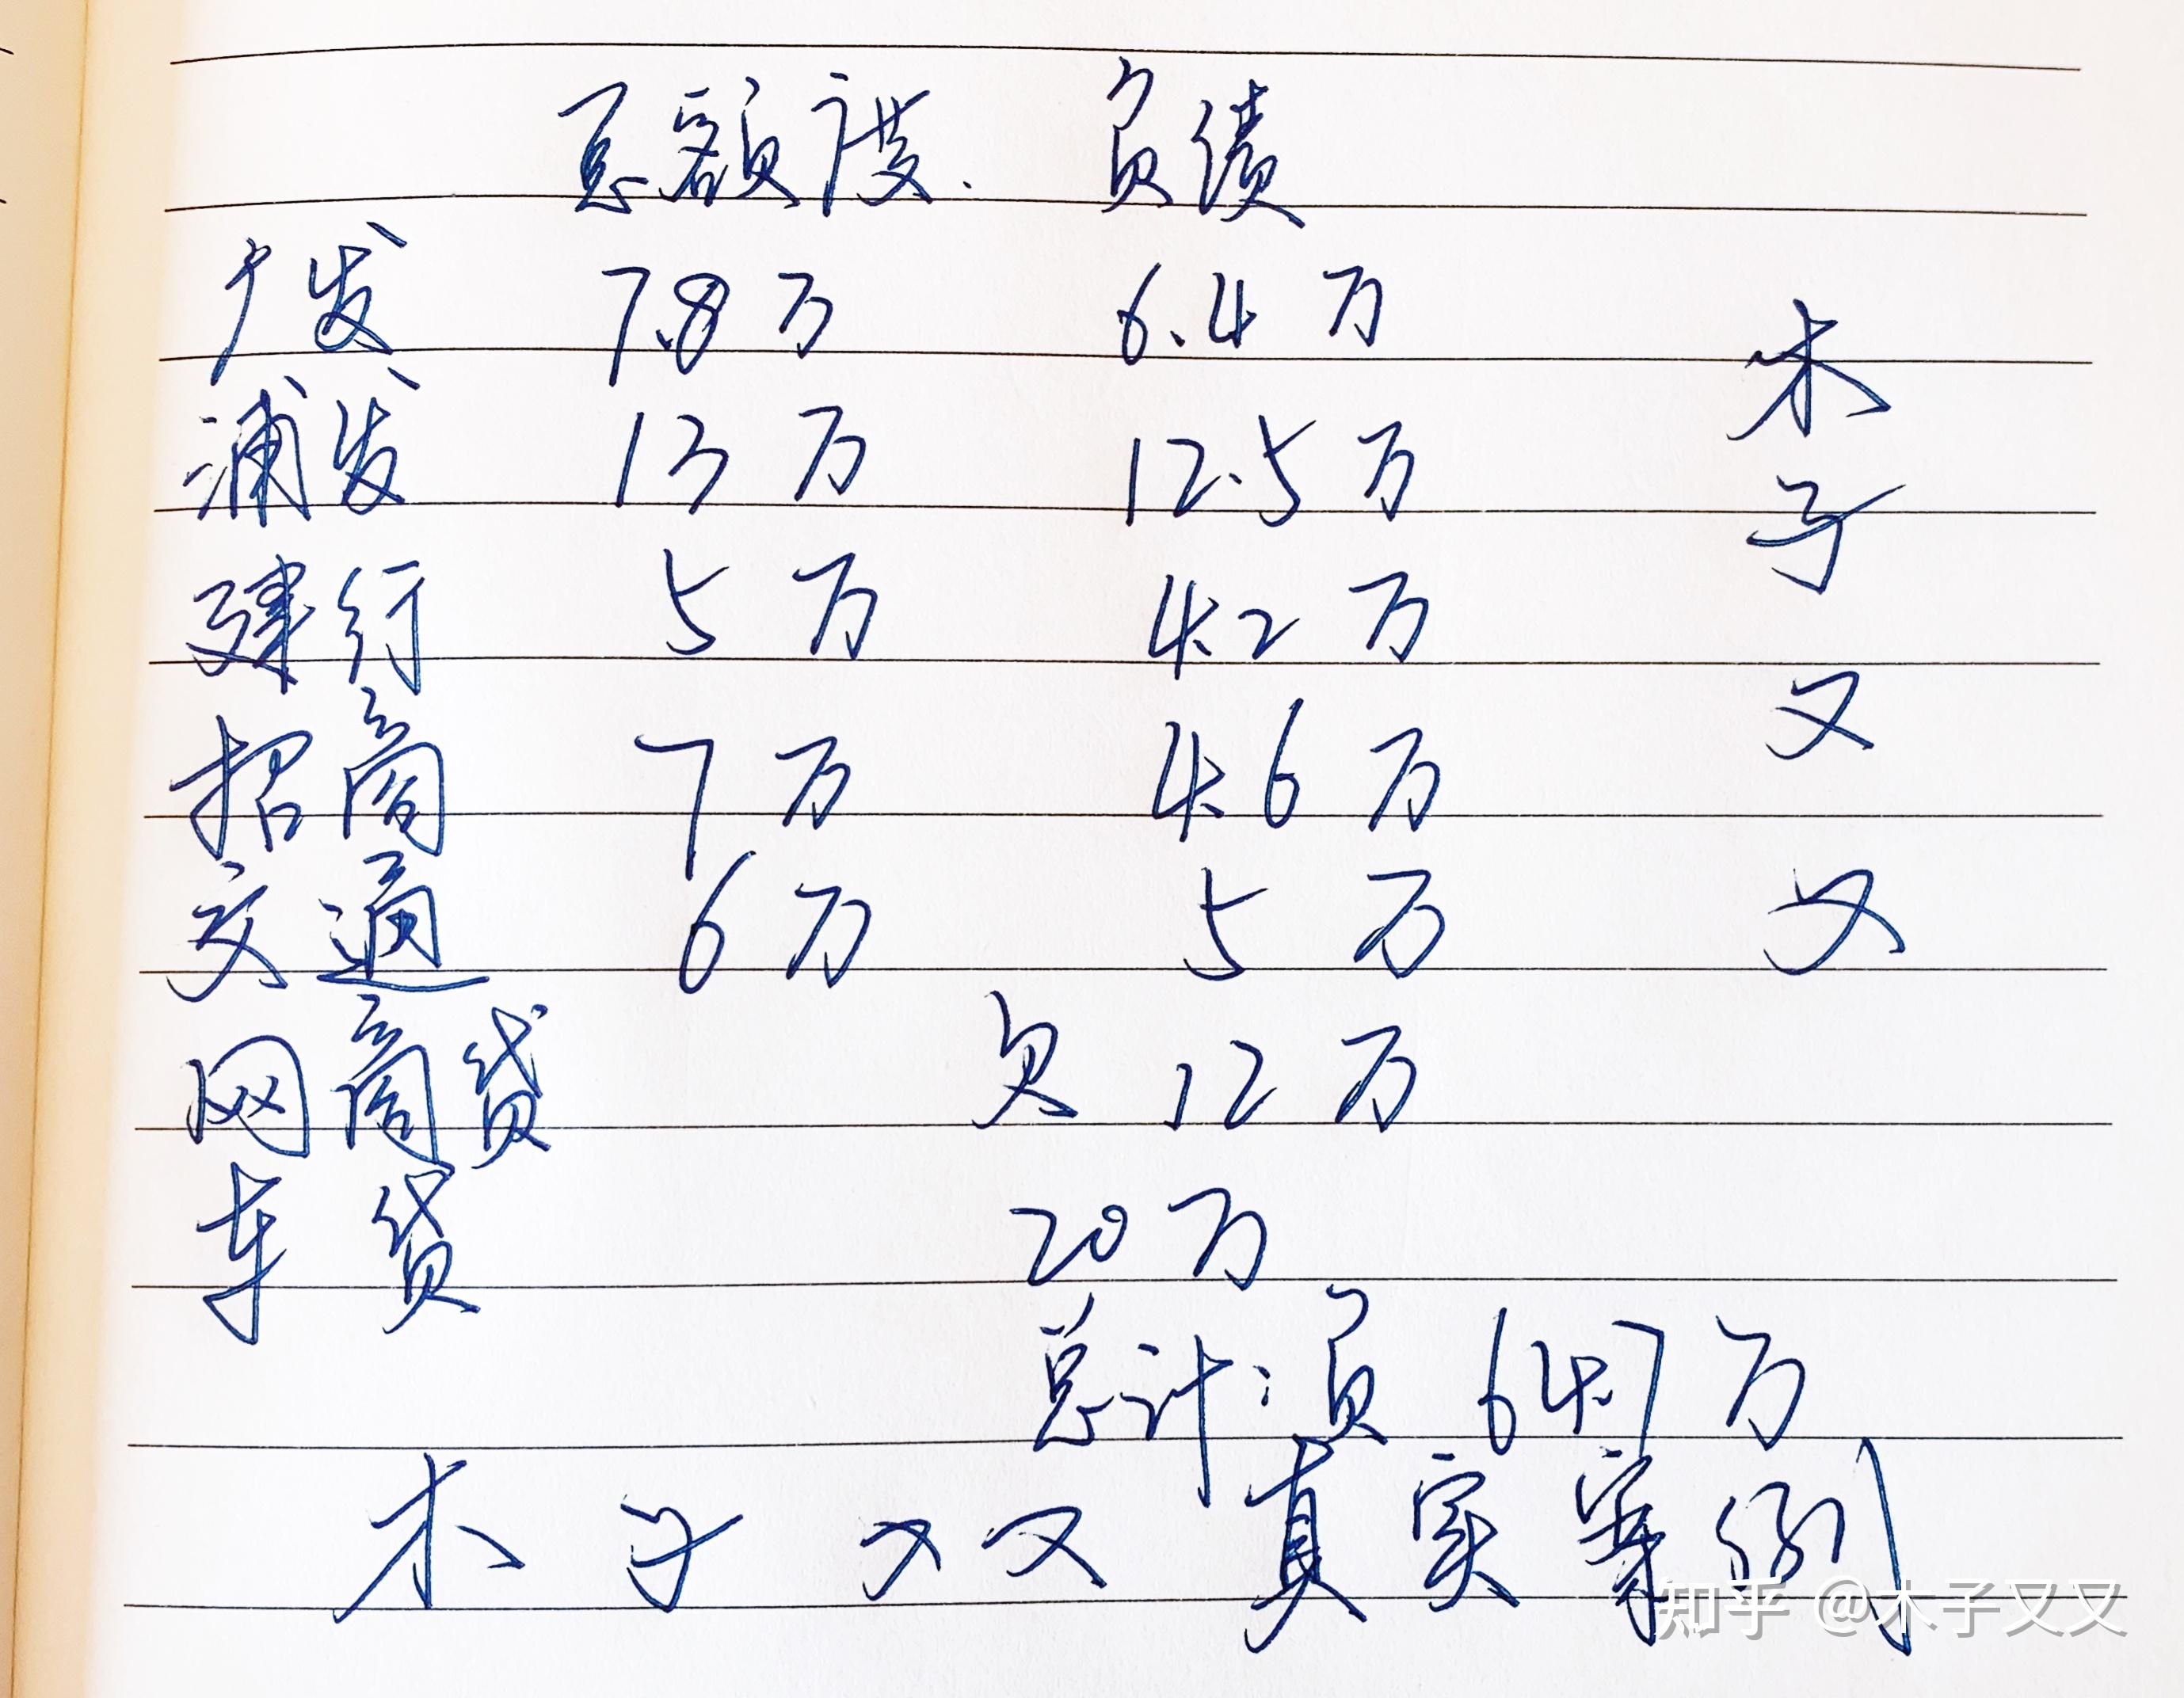 总额度. 负债
广发 7.8万 6.4万
浦发 13万 12.5万
建行 5万 4.2万
招商 7万 4.6万
交通 6万 5万
网商贷 欠12万
车贷 20万
总计:负 64.7万
木子又又 真实案例
木子又又
知乎 @木子又又